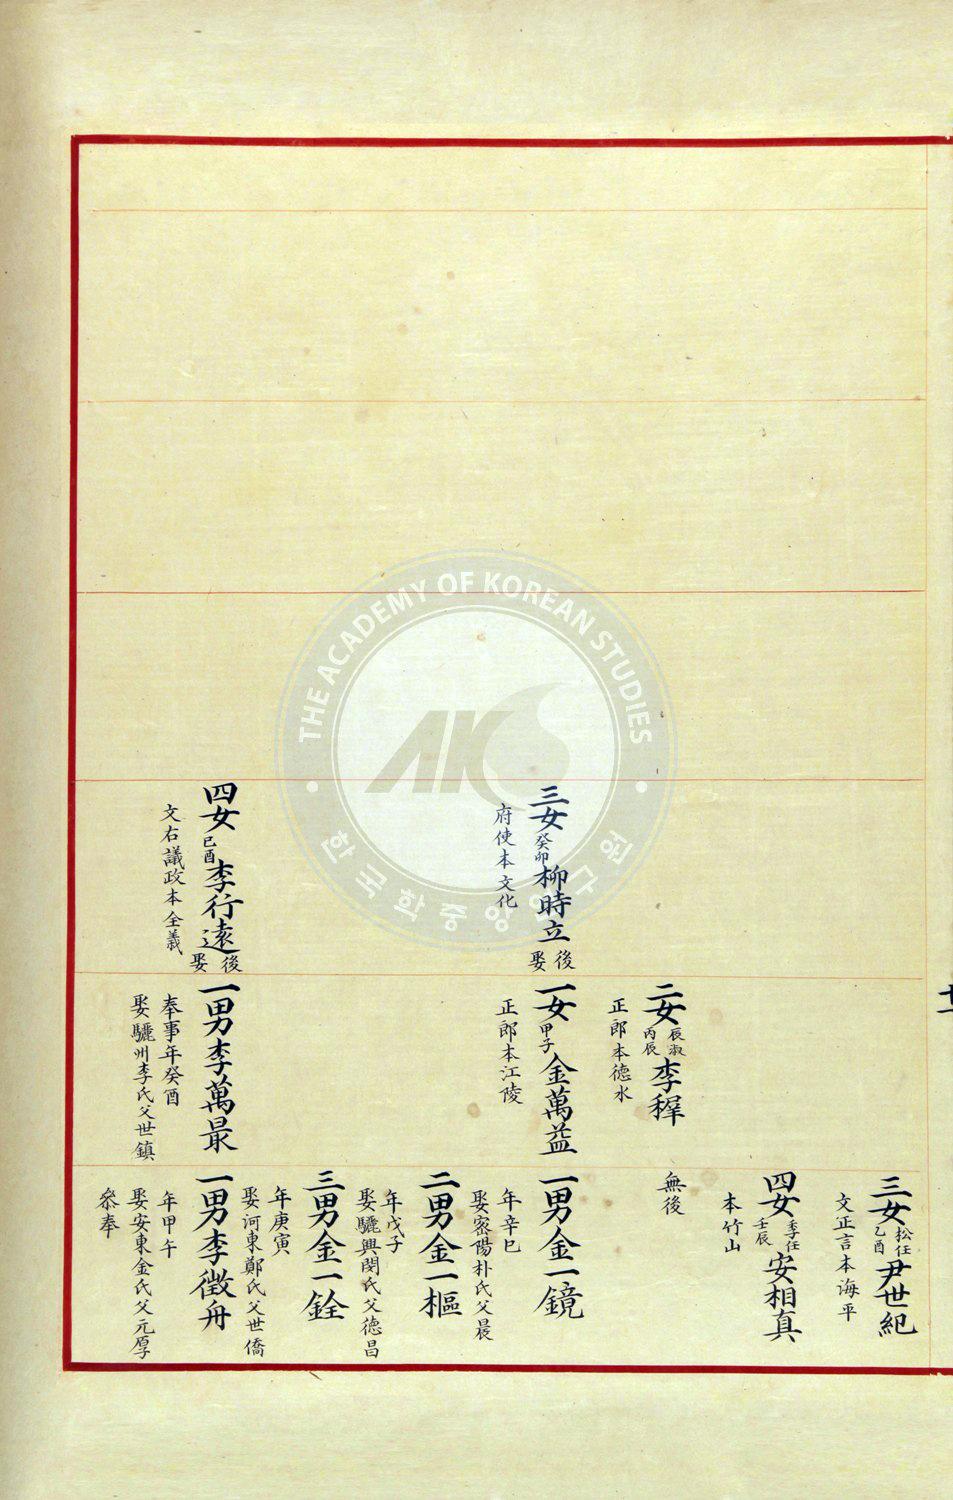 三女 癸卯 柳時立 後娶
府使本文化
四女 己酉 李行遠 後娶
文右議政本全義
二女 辰淑 丙辰 李穉
正郎本德水
一女 甲子 金萬益
正郎本江陵
一男李萬最
奉事年癸酉
娶驪州李氏父世鎮
三女 松任 乙酉 尹世紀
文正言本海平
四女 季任 壬辰 安相真
本竹山
無後
一男金一鏡
年辛巳
娶密陽朴氏父晨
二男金一樞
年戊子
娶驪興閔氏父德昌
三男金一銓
年庚寅
娶河東鄭氏父世僑
一男李徵舟
年甲午
娶安東金氏父元厚
叅奉
THE ACADEMY OF KOREAN STUDIES
한국학중앙연구원
AKS